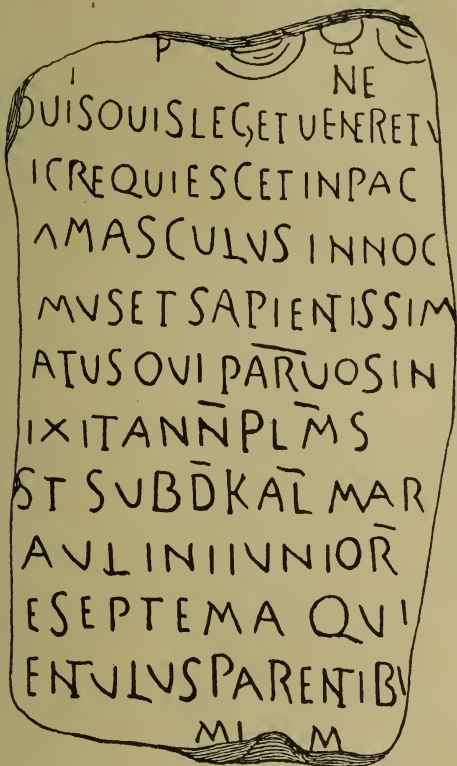 P
NE
QUISQUIS LEG ET UENERET
ICREQUIESCET IN PAC
AMASCULUS INNOC
MVSET SAPIENTISSIM
ATUS QVI PARUOS IN
IXIT ANN PL MS
ST SVB D KAL MAR
AVLINI IVNIOR
E SEPTEMA QVI
ENTVLVS PARENTIBV
MI M